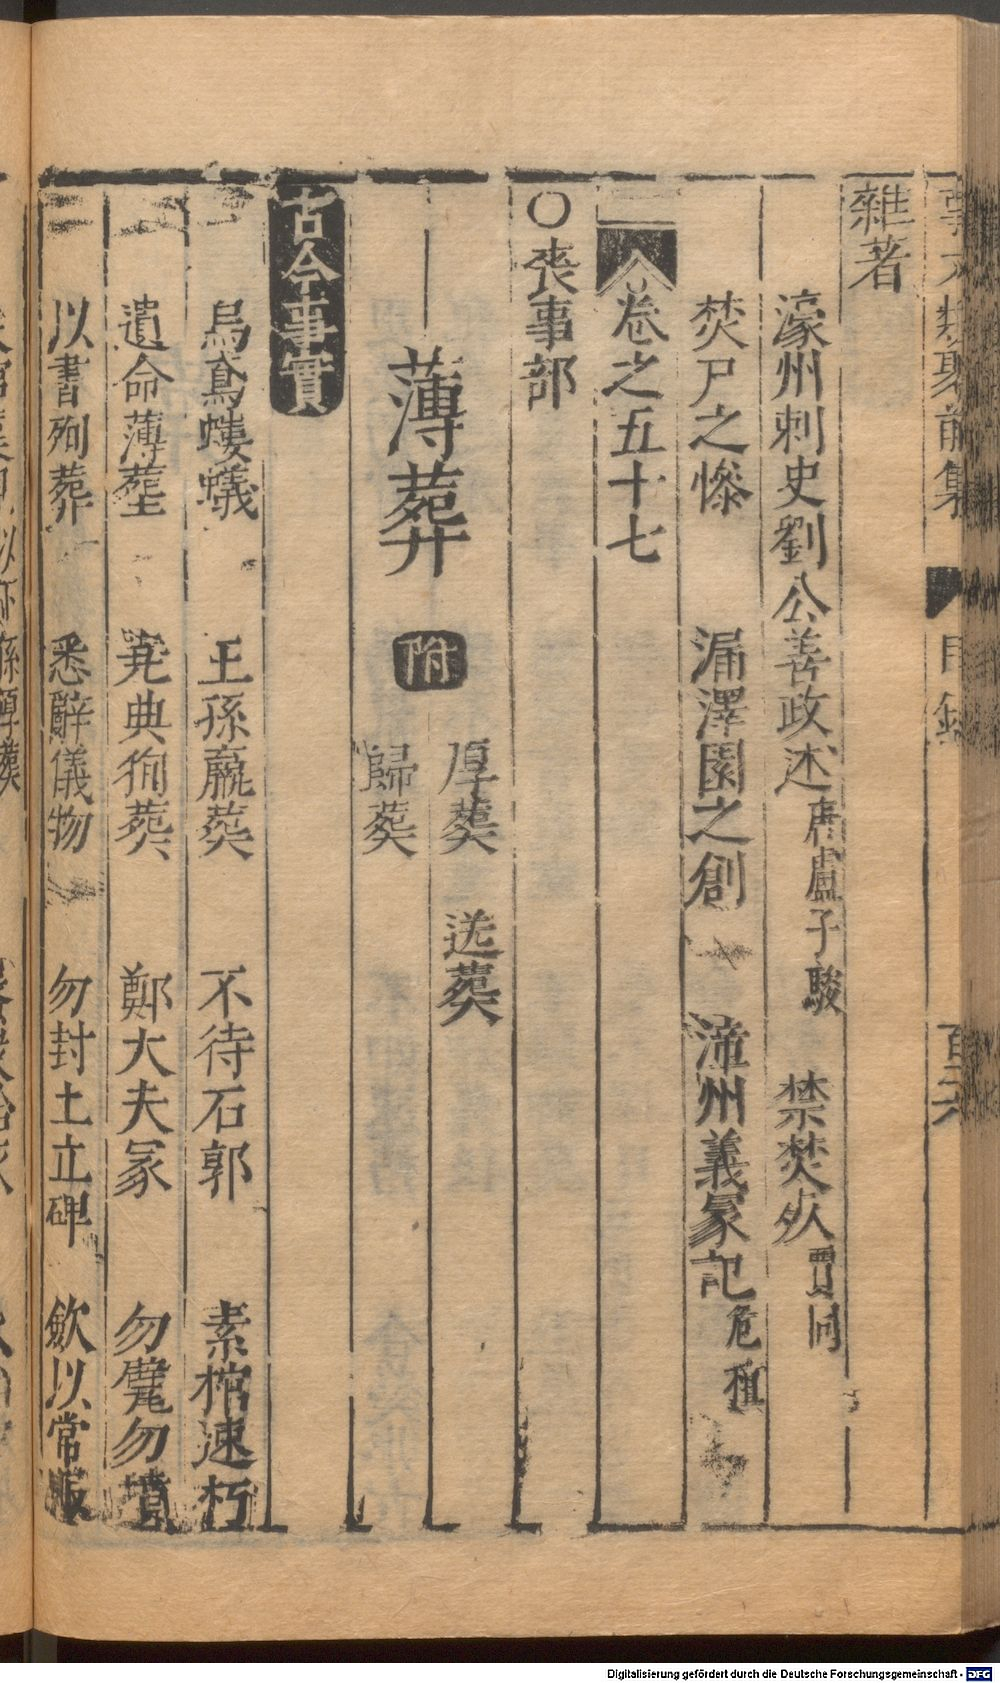 事文類聚前集 目錄 百六
雜著
濠州刺史劉公善政述 唐盧子駿 禁焚死 賈同
焚尸之慘 漏澤園之創 漳州義冢記 危稹
卷之五十七
○喪事部
薄葬 附 厚葬 送葬
歸葬
古今事實
烏鳶螻蟻 王孫羸葬 不待石郭 素棺速朽
遺命薄葬 堯典徇葬 鄭大夫冢 勿甓勿墳
以書殉葬 悉辭儀物 勿封土立碑 歛以常服
Digitalisierung gefördert durch die Deutsche Forschungsgemeinschaft - DFG